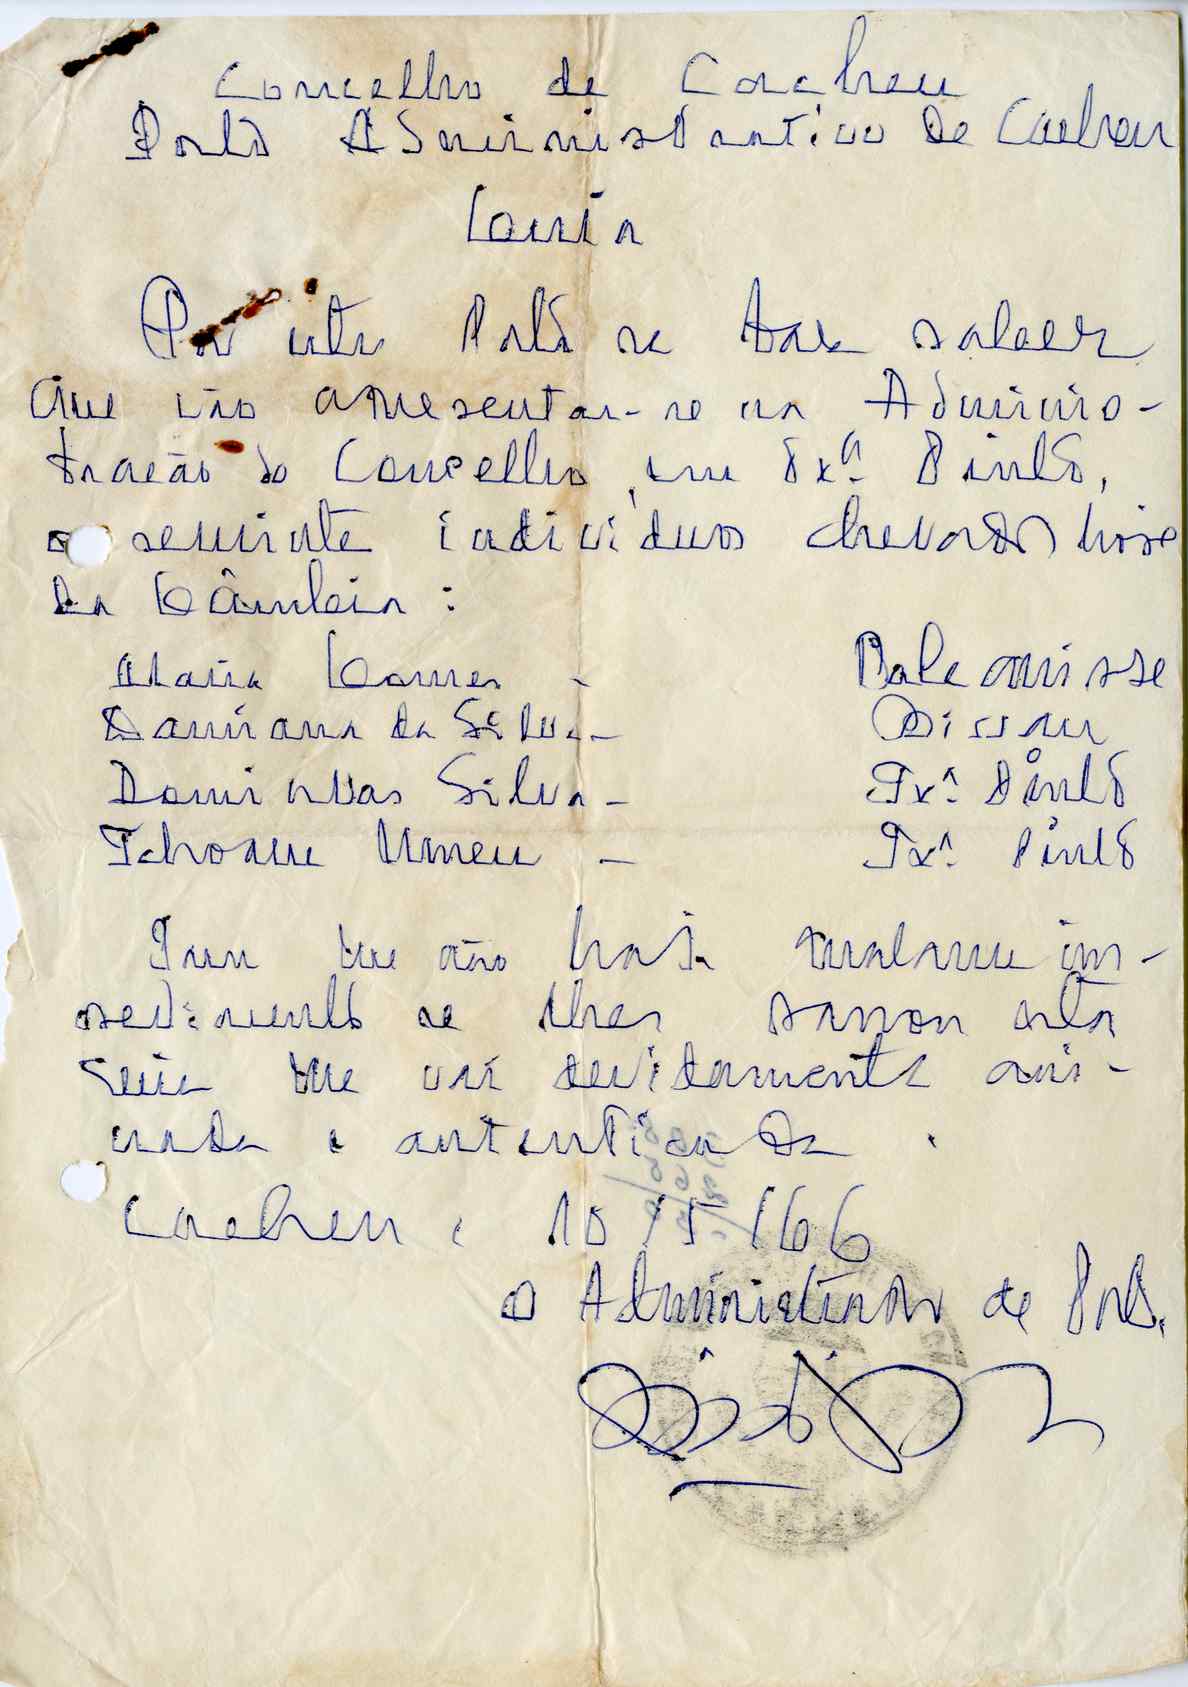 Concelho de Cacheu
Posto Administrativo de Cacheu
Guia
Por este Posto se faz saber
que vão apresentar-se na Adminis-
tração do Concelho, em Txª Pinto,
o seguinte individuos chegados hoje
da Gâmbia :
Maria Gomes -
Damiana da Silva - Bissau
Domingas Silva - Txª Pinto
Tchoque Umeu - Txª Pinto
Para que não haja qualquer im-
pedimento se lhes passou esta
Guia que vai devidamente assi-
nada e autenticada .
Cacheu, 10/5/66
O Administrador de Posto.